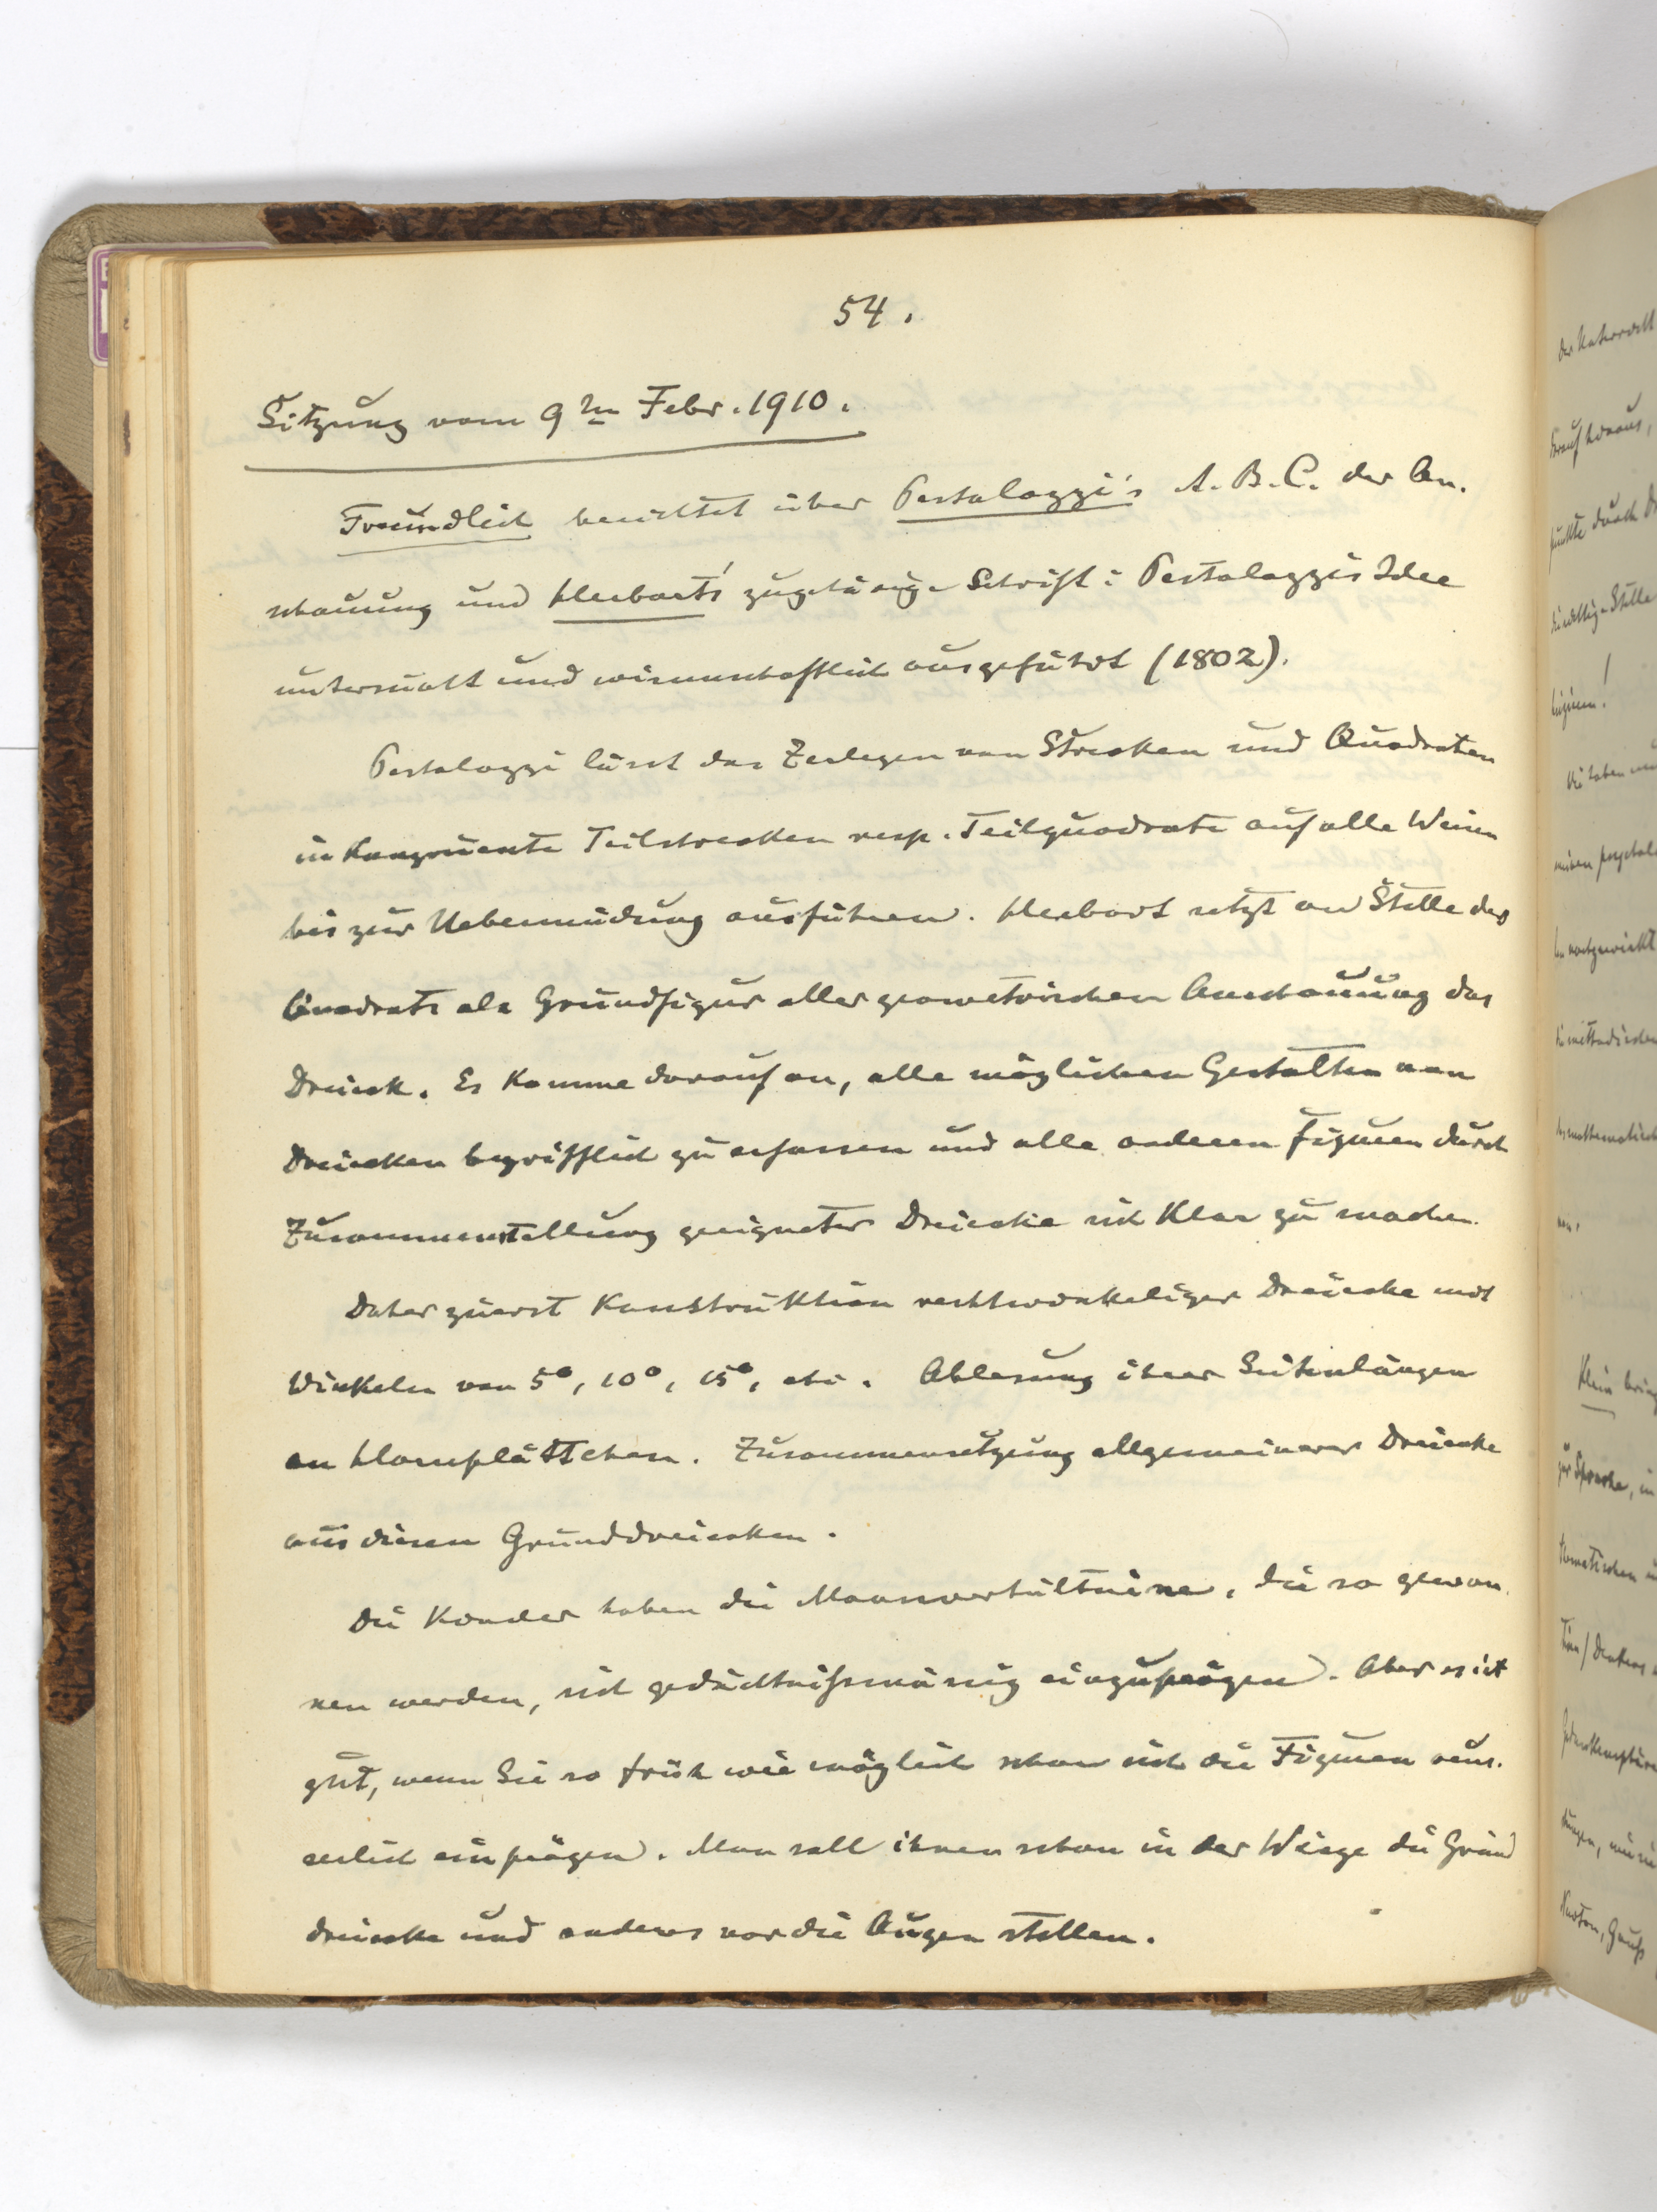 54.
Sitzung vom 9ten Febr. 1910.
Freundlich berichtet über Pestalozzi's A. B. C. der An-
schauung und Herbart's zugehörige Schrift: Pestalozzis Idee
untersucht und wissenschaftlich ausgeführt (1802).
Pestalozzi lässt das Zerlegen von Strecken und Quadraten
in kongruente Teilstrecken resp. Teilquadrate auf alle Weisen
bis zur Uebermüdung ausführen. Herbart setzt an Stelle des
Quadrats als Grundfigur aller geometrischen Anschauung das
Dreieck. Es komme darauf an, alle möglichen Gestalten von
Dreiecken begrifflich zu erfassen und alle anderen Figuren durch
Zusammenstellung geeigneter Dreiecke sich klar zu machen.
Daher zuerst Konstruktion rechtwinkeliger Dreiecke mit
Winkeln von 5°, 10°, 15°, etc. Ablesung ihrer Seitenlängen
an Hornplättchen. Zusammensetzung allgemeinerer Dreiecke
aus diesen Grunddreiecken.
Die Kinder haben die Maassverhältnisse, die so gewon-
nen werden, sich gedächtnissmässig einzuprägen. Aber es ist
gut, wenn Sie so früh wie möglich schon sich die Figuren äus-
serlich einprägen. Man soll ihnen schon in der Wiege die Grund
dreiecke und anderes vor die Augen stellen.
darauf hinaus,
punkte durch
Stelle
Sie haben
nachgewirkt
die methodischen
Klein
zur Sprache, in
Newton, Gauß